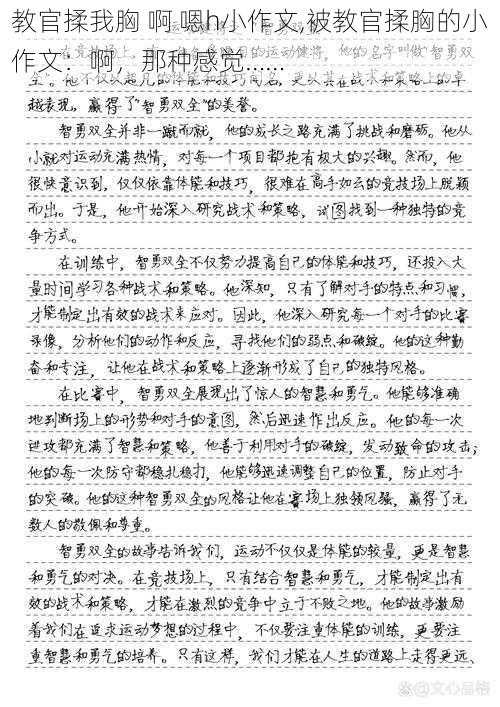 教官揉我胸 啊 嗯h小作文,被教官揉胸的小
作文：啊，那种感觉......
越表现，赢得了"智勇双全"的美誉。
智勇双全并非一蹴而就，他的成长之路充满了挑战和磨砺。他从
小就对运动充满热情，对每一个项目都抱有极大的兴趣。然而，他
很快意识到，仅仅依靠体能和技巧，很难在高手如云的竞技场上脱颖
而出。于是，他开始深入研究战术和策略，试图找到一种独特的竞
争方式。
在训练中，智勇双全不仅努力提高自己的体能和技巧，还投入大
量时间学习各种战术和策略。他深知，只有了解对手的特点和习惯，
才能制定出有效的战术来应对。因此，他深入研究每一个对手的比赛
录像，分析他们的动作和反应，寻找他们的弱点和破绽。他的这种勤
奋和专注，让他在战术和策略上逐渐形成了自己的独特风格。
在比赛中，智勇双全展现出了惊人的智慧和勇气。他能够准确
地判断场上的形势和对手的意图，然后迅速作出反应。他的每一次
进攻都充满了智慧和策略，他善于利用对手的破绽，发动致命的攻击；
他的每一次防守都稳扎稳打，他能够迅速调整自己的位置，防止对手
的突破。他的这种智勇双全的风格让他在赛场上独领风骚，赢得了无
数人的敬佩和尊重。
智勇双全的故事告诉我们，运动不仅仅是体能的较量，更是智慧
和勇气的对决。在竞技场上，只有结合智慧和勇气，才能制定出有
效的战术和策略，才能在激烈的竞争中立于不败之地。他的故事激励
着我们在追求运动梦想的过程中，不仅要注重体能的训练，更要注
重智慧和勇气的培养。只有这样，我们才能在人生的道路上走得更远、
文心品格